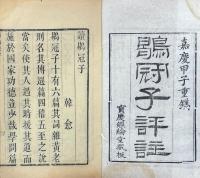 嘉慶甲子重鐫
鶡冠子評註
藏板
讀鶡冠子
韓愈
鶡冠子十有六篇其詞雜黃老
刑名其博選篇四稽五至之說
當矣使其人遇時援其道而
施於國家功德豈少哉學問篇